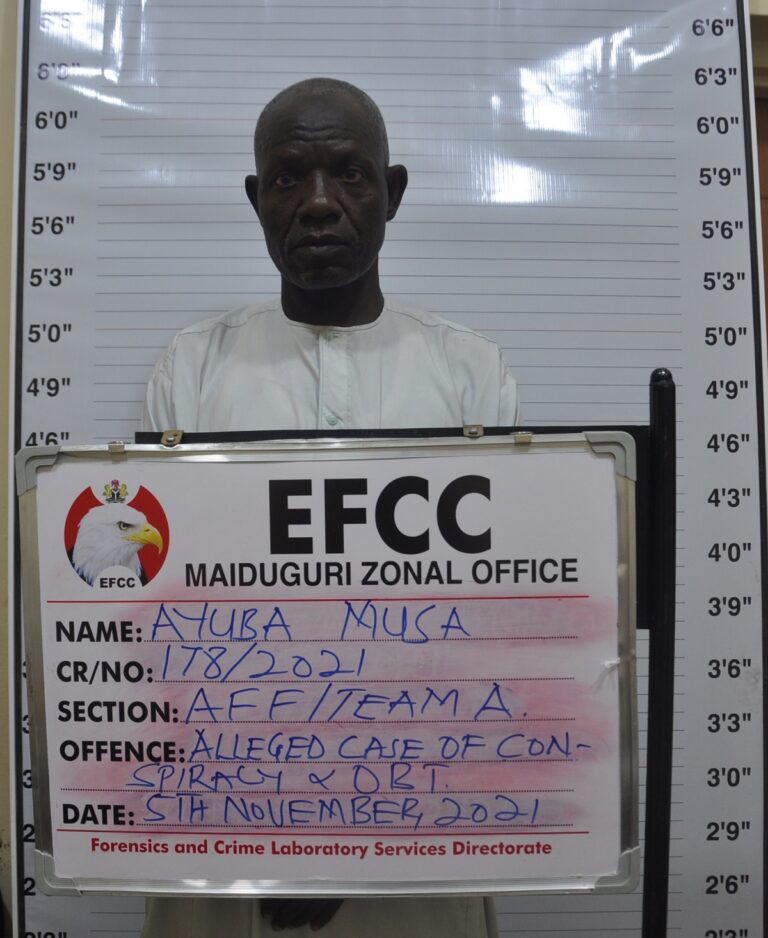 6'6" 6'6"
6'3" 6'3"
6'0" 6'0"
5'9" 5'9"
5'6" 5'6"
5'3" 5'3"
5'0" 5'0"
4'9" 4'9"
4'6" 4'6"
EFCC 4'3"
MAIDUGURI ZONAL OFFICE 4'0"
EFCC
3'9"
NAME: AYUBA MUSA
CR/NO: 178/2021 3'6"
SECTION: AFF/TEAM A. 3'3"
OFFENCE: ALLEGED CASE OF CON-
SPIRACY & OBT. 3'0"
DATE: 5TH NOVEMBER, 2021 2'9"
Forensics and Crime Laboratory Services Directorate
2'6"
2'3"